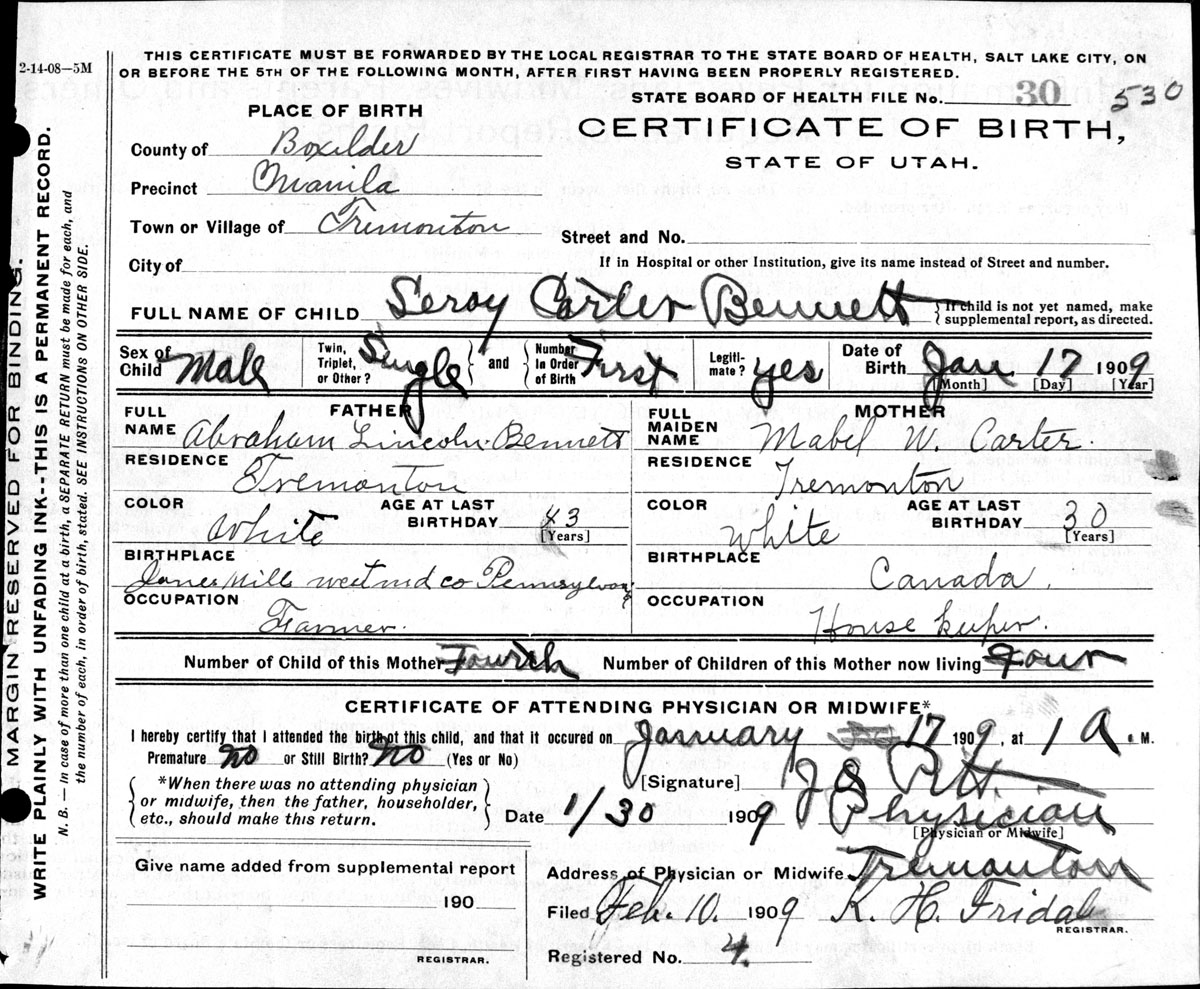 2-14-08—5M
THIS CERTIFICATE MUST BE FORWARDED BY THE LOCAL REGISTRAR TO THE STATE BOARD OF HEALTH, SALT LAKE CITY, ON
OR BEFORE THE 5TH OF THE FOLLOWING MONTH, AFTER FIRST HAVING BEEN PROPERLY REGISTERED.
MARGIN RESERVED FOR BINDING.
WRITE PLAINLY WITH UNFADING INK--THIS IS A PERMANENT RECORD.
N. B. — In case of more than one child at a birth, a SEPARATE RETURN must be made for each, and
the number of each, in order of birth, stated. SEE INSTRUCTIONS ON OTHER SIDE.
STATE BOARD OF HEALTH FILE No. 30 530
CERTIFICATE OF BIRTH,
STATE OF UTAH.
PLACE OF BIRTH
County of Boxelder
Precinct Manila
Town or Village of Tremonton
Street and No.
City of
If in Hospital or other Institution, give its name instead of Street and number.
FULL NAME OF CHILD Leroy Carter Bennett { If child is not yet named, make
supplemental report, as directed.
Sex of Child Male
Twin, Triplet, or Other? Single and Number In Order of Birth First
Legitimate? yes
Date of Birth Jan 17 1909
[Month] [Day] [Year]
FATHER
FULL NAME Abraham Lincoln Bennett
RESIDENCE Tremonton
COLOR White AGE AT LAST BIRTHDAY 43
[Years]
BIRTHPLACE
Jones Mills westmd co Pennsylvan
OCCUPATION
Farmer.
MOTHER
FULL MAIDEN NAME Mabel W. Carter.
RESIDENCE Tremonton
COLOR White AGE AT LAST BIRTHDAY 30
[Years]
BIRTHPLACE Canada.
OCCUPATION House keeper.
Number of Child of this Mother Fourth Number of Children of this Mother now living Four
CERTIFICATE OF ATTENDING PHYSICIAN OR MIDWIFE*
I hereby certify that I attended the birth of this child, and that it occured on January 17 1909, at 1 A. M.
Premature no or Still Birth? no (Yes or No)
*When there was no attending physician
or midwife, then the father, householder,
etc., should make this return.
[Signature]
Date 1/30 1909 Physician
[Physician or Midwife]
Give name added from supplemental report
190
REGISTRAR.
Address of Physician or Midwife Tremonton
Filed Feb. 10. 1909 K. H. Fridal
REGISTRAR.
Registered No. 4.